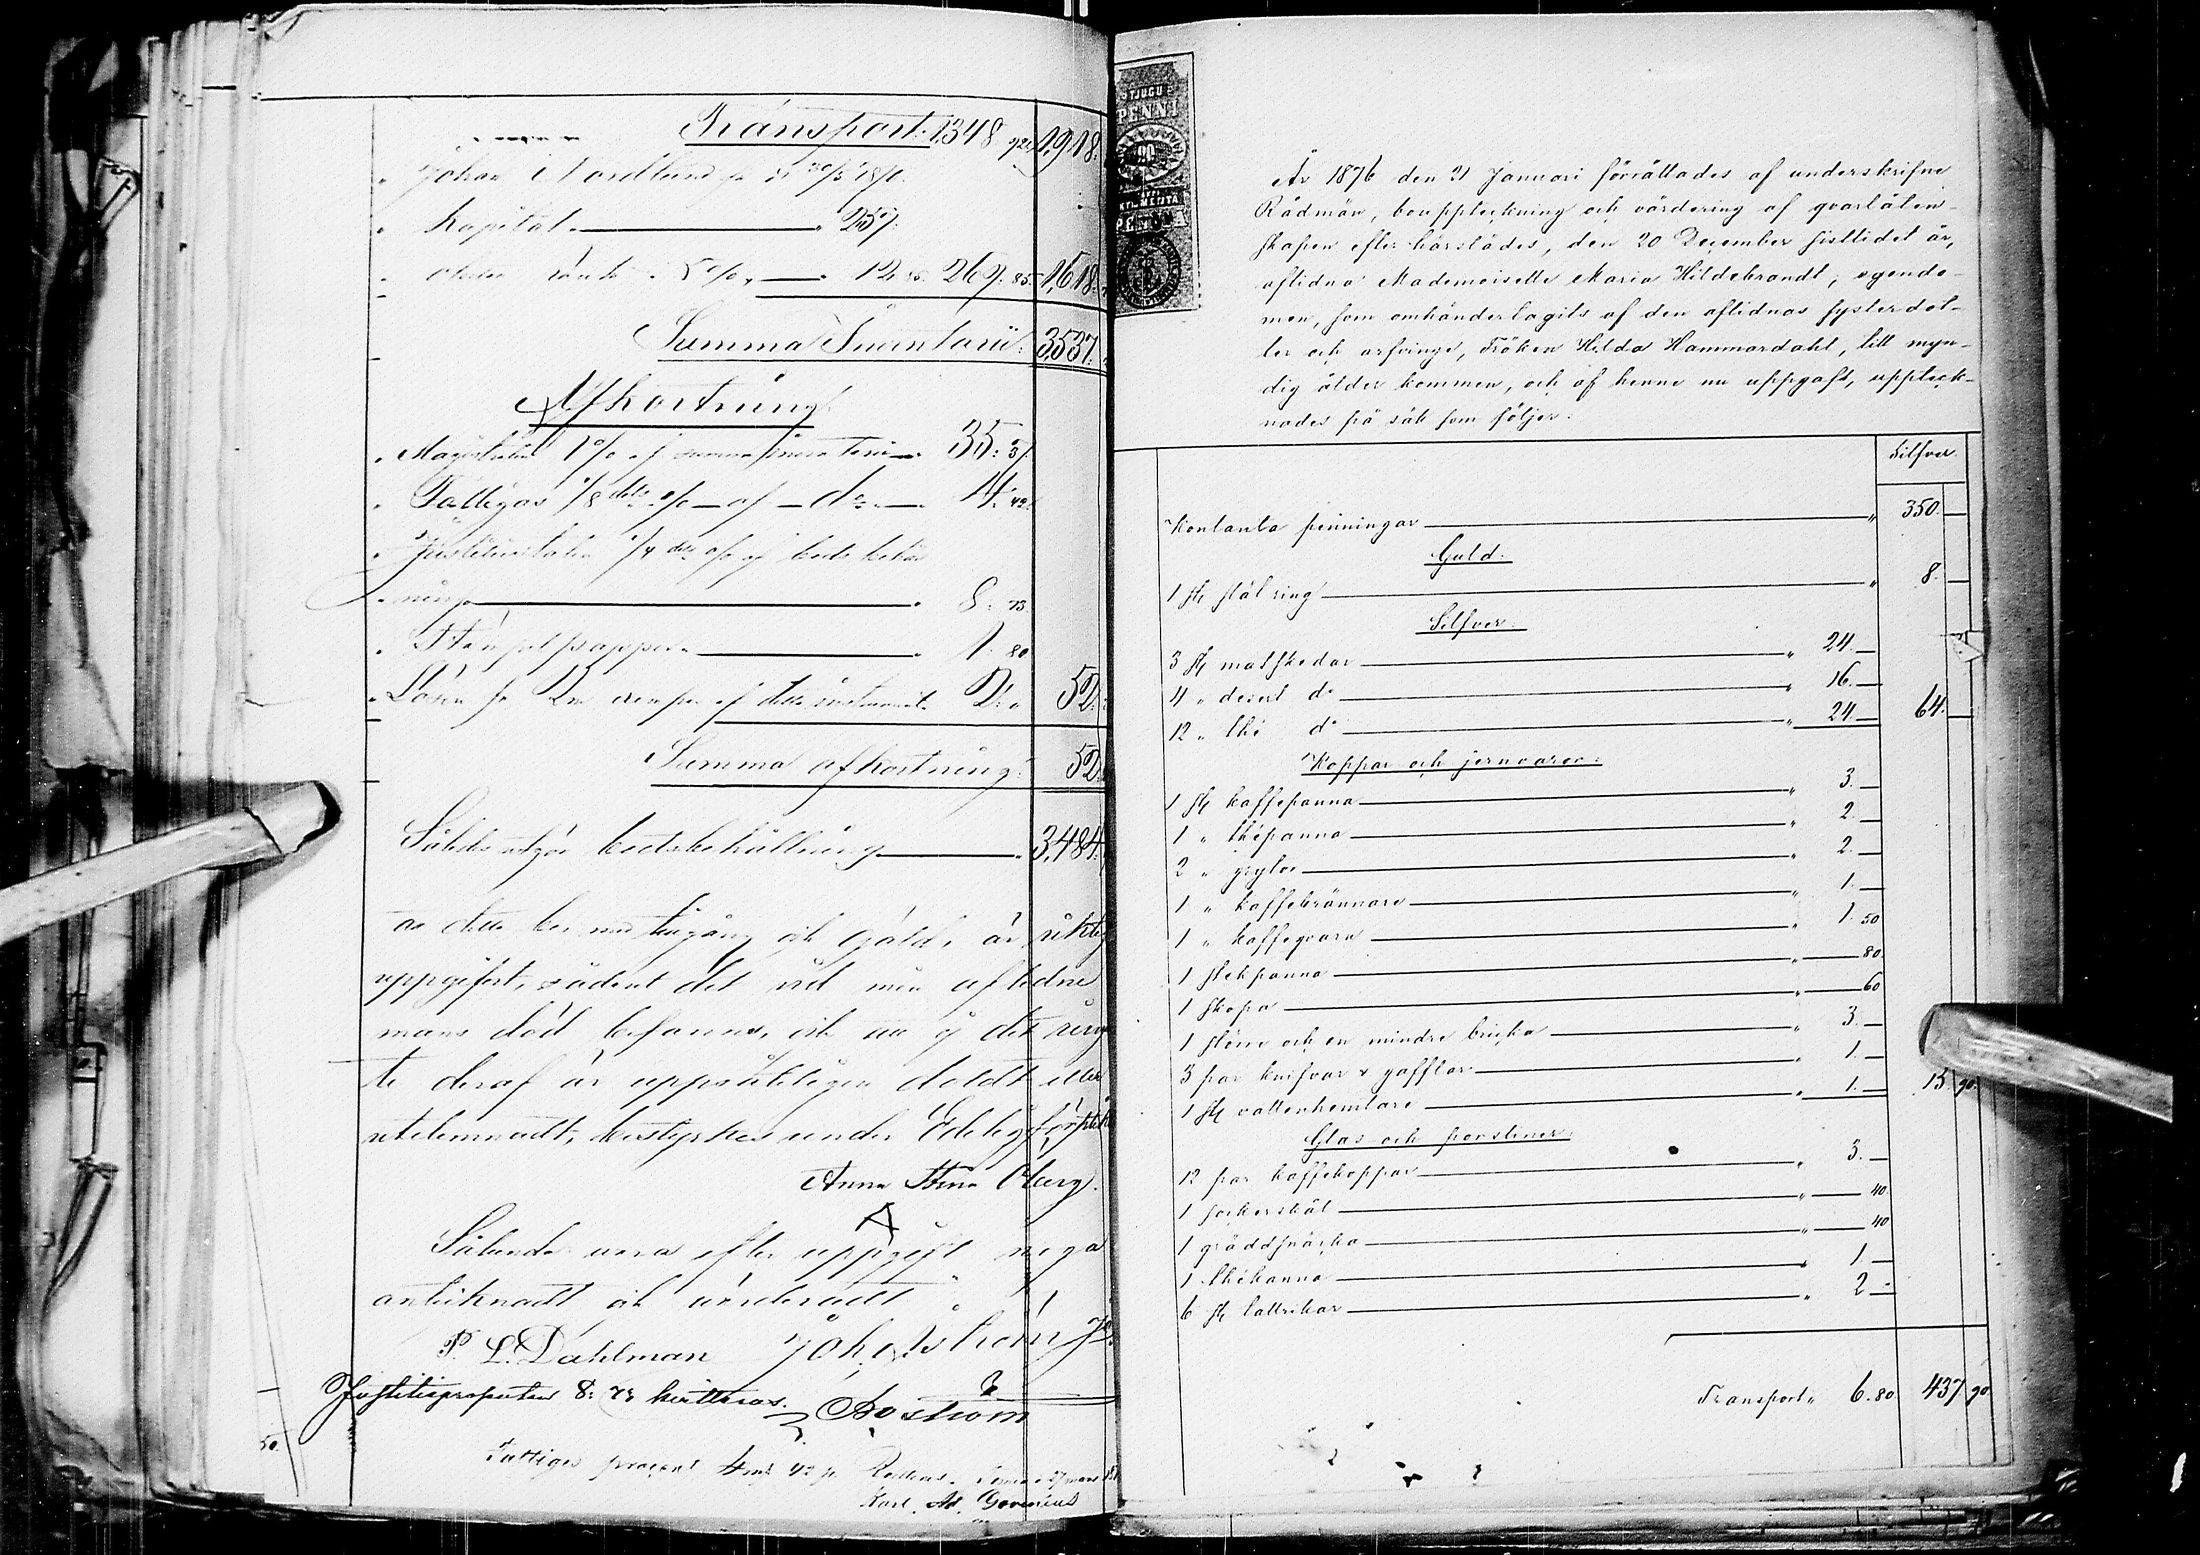 Transport. 1348 92 1,918:
Johan Nordlund
Kapital 257.
ränta 5% 12. 85. 269. 85 1,618:
Summa Inventarii: 3,537.
Afkortning:
Magistraten 1% af summa inventarii 35: 37
Fattigas 1/8 dels % af do 4: 42.
Justitiestaten 1/4 dels % af bods behåll
ning 8: 73.
Stämpelpapper 1. 80
Lösen för 2ne exempl. af detta instrument 2: 52.
Summa afkortning: 52.
Således utgör bodsbehållning 3,484.
As detta bo med tillgång och gäld, är riktig
uppgifvet, sådant det vid min aflidne
mans död befanns, och att ej det ring
te deraf är uppsåtligen doldt eller
utelemnadt, bestyrkes under Edelig förplik
Anna Stina Öberg.
Sålunda vara efter uppgift noga
antecknadt och värderadt
P. L. Dahlman Joh. Åström
Justitieprocenten 8: 73 kvitteras.
Boström
50.
Fattiges procent 4 m 42 p
Karl. Ad. Govenius
TJUGU
PENNI
20
KYMMENTÄ
PENNIÄ
År 1876 den 21 Januari förrättades af underskrifne
Rådmän, bouppteckning och värdering af qvarlåten-
skapen efter härstädes, den 20 December sistlidet år,
aflidna Mademoiselle Maria Hildebrandt, egendo-
men, som omhändertagits af den aflidnas systerdot-
ter och arfvinge, Fröken Hilda Hammardahl, till myn-
dig ålder kommen, och af henne nu uppgafs, uppteck-
nades på sätt som följer:
Silfver.
Kontanta penningar " 350. —
Guld.
1 st slät ring " 8. —
Silfver.
3 st matskedar " 24. —
4 " desert do " 16. —
12 " thé do " 24 — 64. —
Koppar och jernvaror:
1 st kaffepanna " 3. —
1 " thépanna " 2. —
2 " grytor " 2. —
1 " kaffebrännare " 1. —
1 " kaffeqvarn " 1. 50
1 stekpanna " — 80
1 skopa " — 60
1 större och en mindre bricka " 3. —
3 par knifvar & gafflar " 1. —
1 st vattenhemtare " 1. — 15 90.
Glas och porsliner:
12 par kaffekoppar " 3. —
1 sockerskål " — 40.
1 gräddsnäcka " — 40
1 thékanna " 1 —
6 st tallrikar " 2 —
Transport " 6. 80 437 90